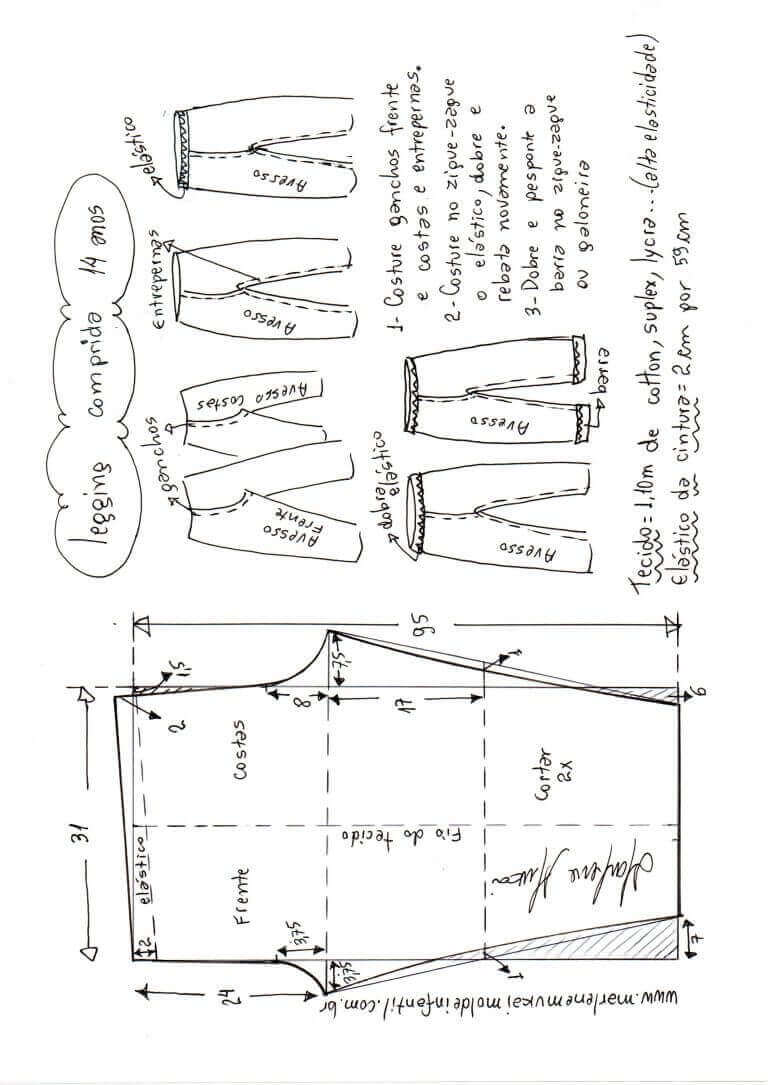 legging comprida 14 anos
ganchos
Avesso Frente
Avesso Costas
Entrepernas
Avesso
elástico
Avesso
dobra elástico
Avesso
Avesso
barra
1- Costure ganchos frente
e costas e entrepernas.
2- Costure no zigue-zague
o elástico, dobre e
rebata novamente.
3- Dobre e pesponte a
barra no zigue-zague
ou galoneira
Tecido= 1,10m de cotton, suplex, lycra... (alta elasticidade)
Elástico da cintura= 2cm por 59cm
31
95
2
1,5
8
7,5
17
1
6
Costas
Frente
elástico
2
Fio do tecido
Cortar
2x
Marlene Mukai
3,75
3,75
24
1
7
www.marlenemukaimoldeinfantil.com.br